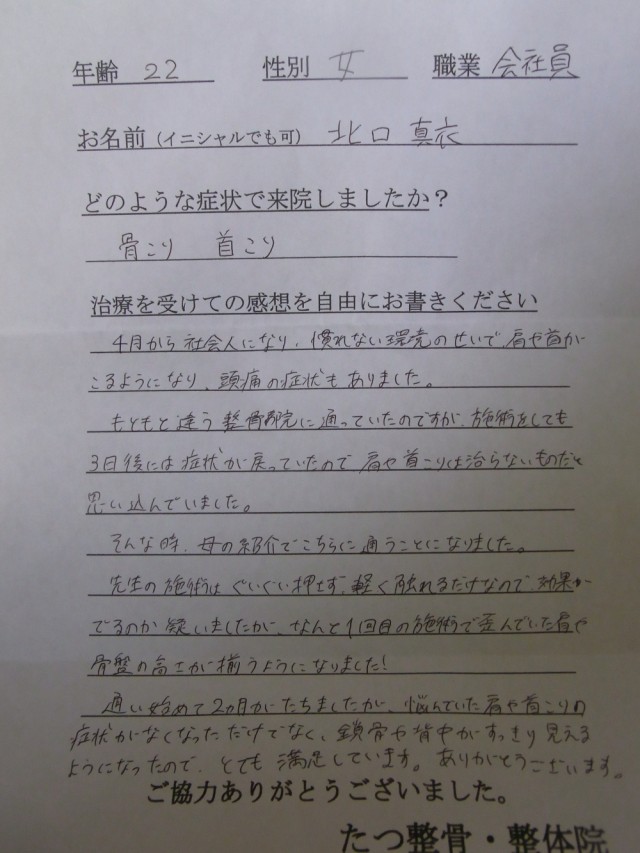 年齢 22 性別 女 職業 会社員
お名前（イニシャルでも可） 北口 真衣
どのような症状で来院しましたか？
骨こり 首こり
治療を受けての感想を自由にお書きください
4月から社会人になり、慣れない環境のせいで肩や首が
こるようになり、頭痛の症状もありました。
もともと違う整骨院に通っていたのですが、施術をしても
3日後には症状が戻っていたので肩や首こりは治らないものだと
思い込んでいました。
そんな時、母の紹介でこちらに通うことになりました。
先生の施術はぐいぐい押せず、軽く触れるだけなので、効果が
でるのか疑いましたが、なんと1回目の施術で歪んでいた肩や
骨盤の高さが揃うようになりました！
通い始めて2ヵ月がたちましたが、悩んでいた肩や首こりの
症状がなくなっただけでなく、鎖骨や背中がすっきり見える
ようになったので、とても満足しています。ありがとうございます。
ご協力ありがとうございました。
たつ整骨・整体院